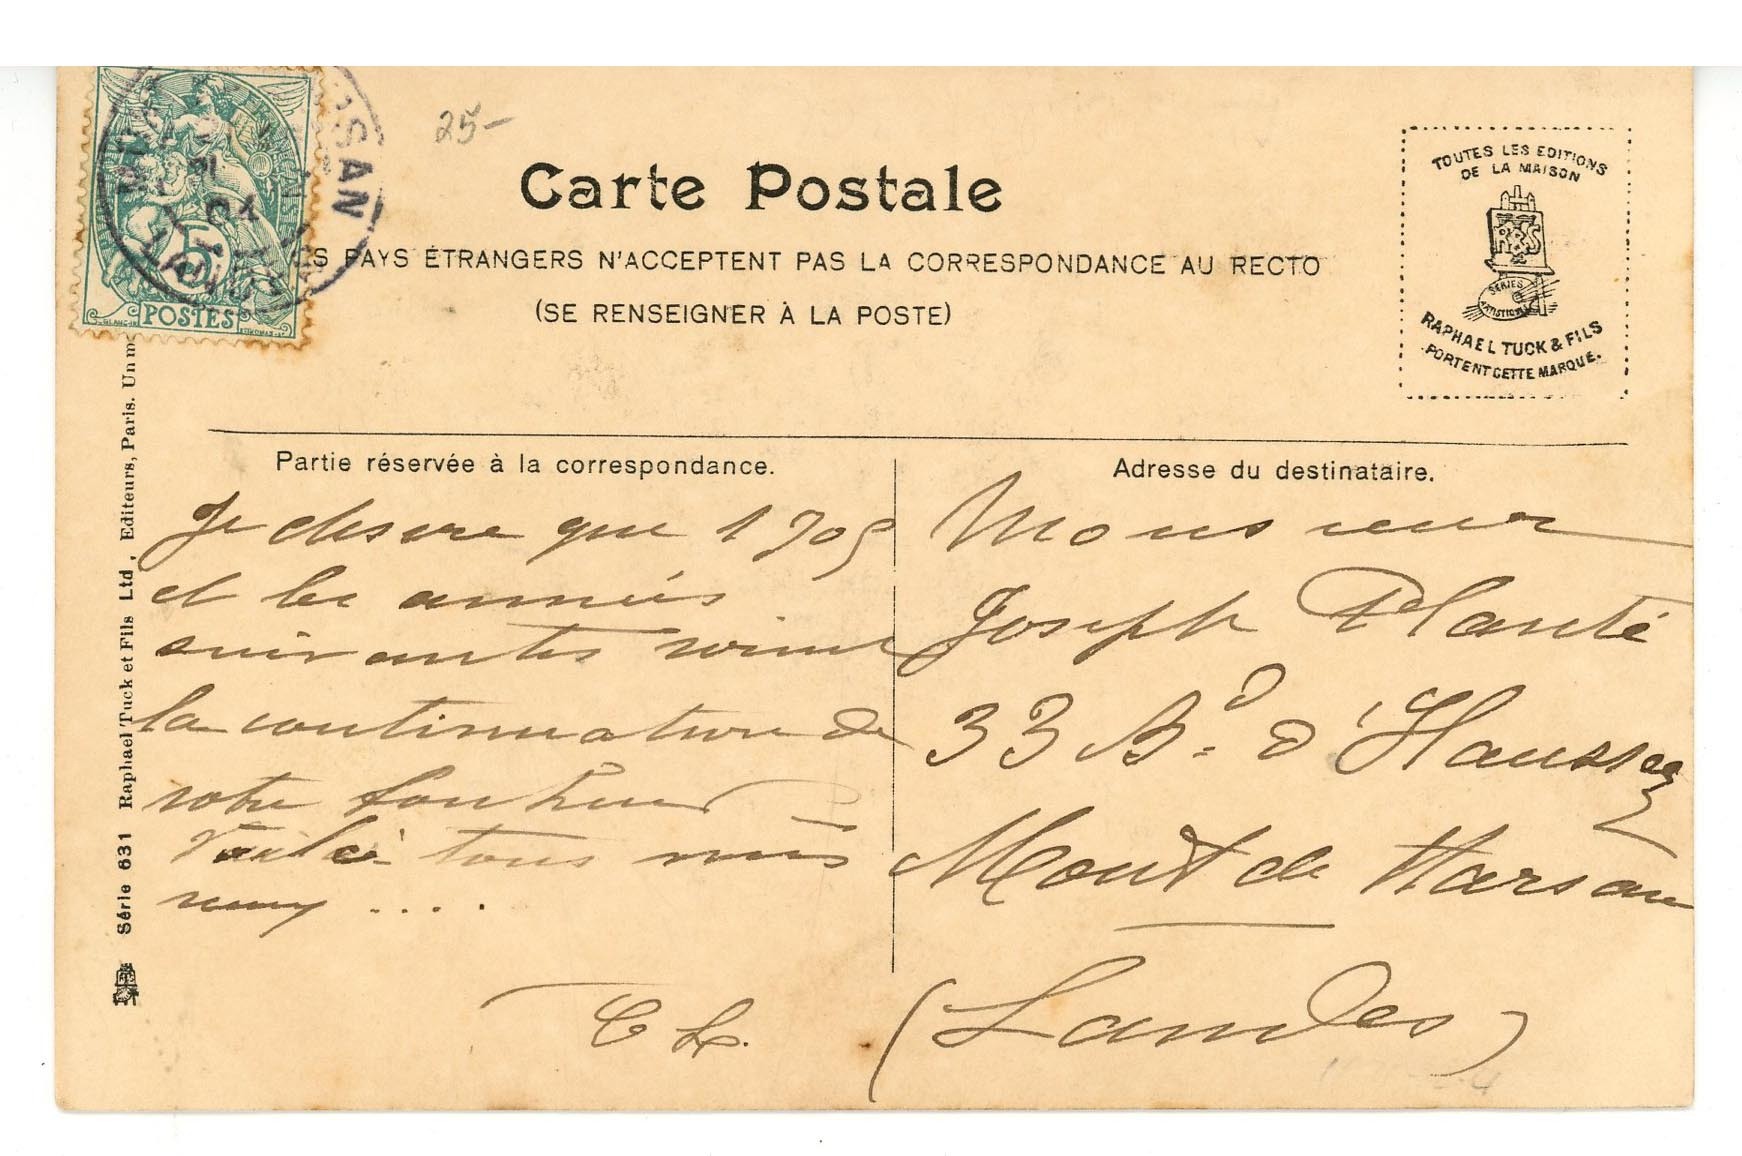 25-
Carte Postale
ES PAYS ÉTRANGERS N'ACCEPTENT PAS LA CORRESPONDANCE AU RECTO
(SE RENSEIGNER À LA POSTE)
5
POSTES
ISAN
TOUTES LES EDITIONS
DE LA MAISON
SERIES
ARTISTIQUES
RAPHAEL TUCK & FILS
PORTENT CETTE MARQUE.
Série 631 Raphael Tuck et Fils Ltd, Editeurs, Paris. Un m
Partie réservée à la correspondance.
Je desire que 1905
et les années
suivantes soient
la continuature de
votre bonheur
Voilà tous mes
.....
C L.
Adresse du destinataire.
Monsieur
Joseph Planté
33 Bd d'Haussez
Mont de Marsan
(Landes)